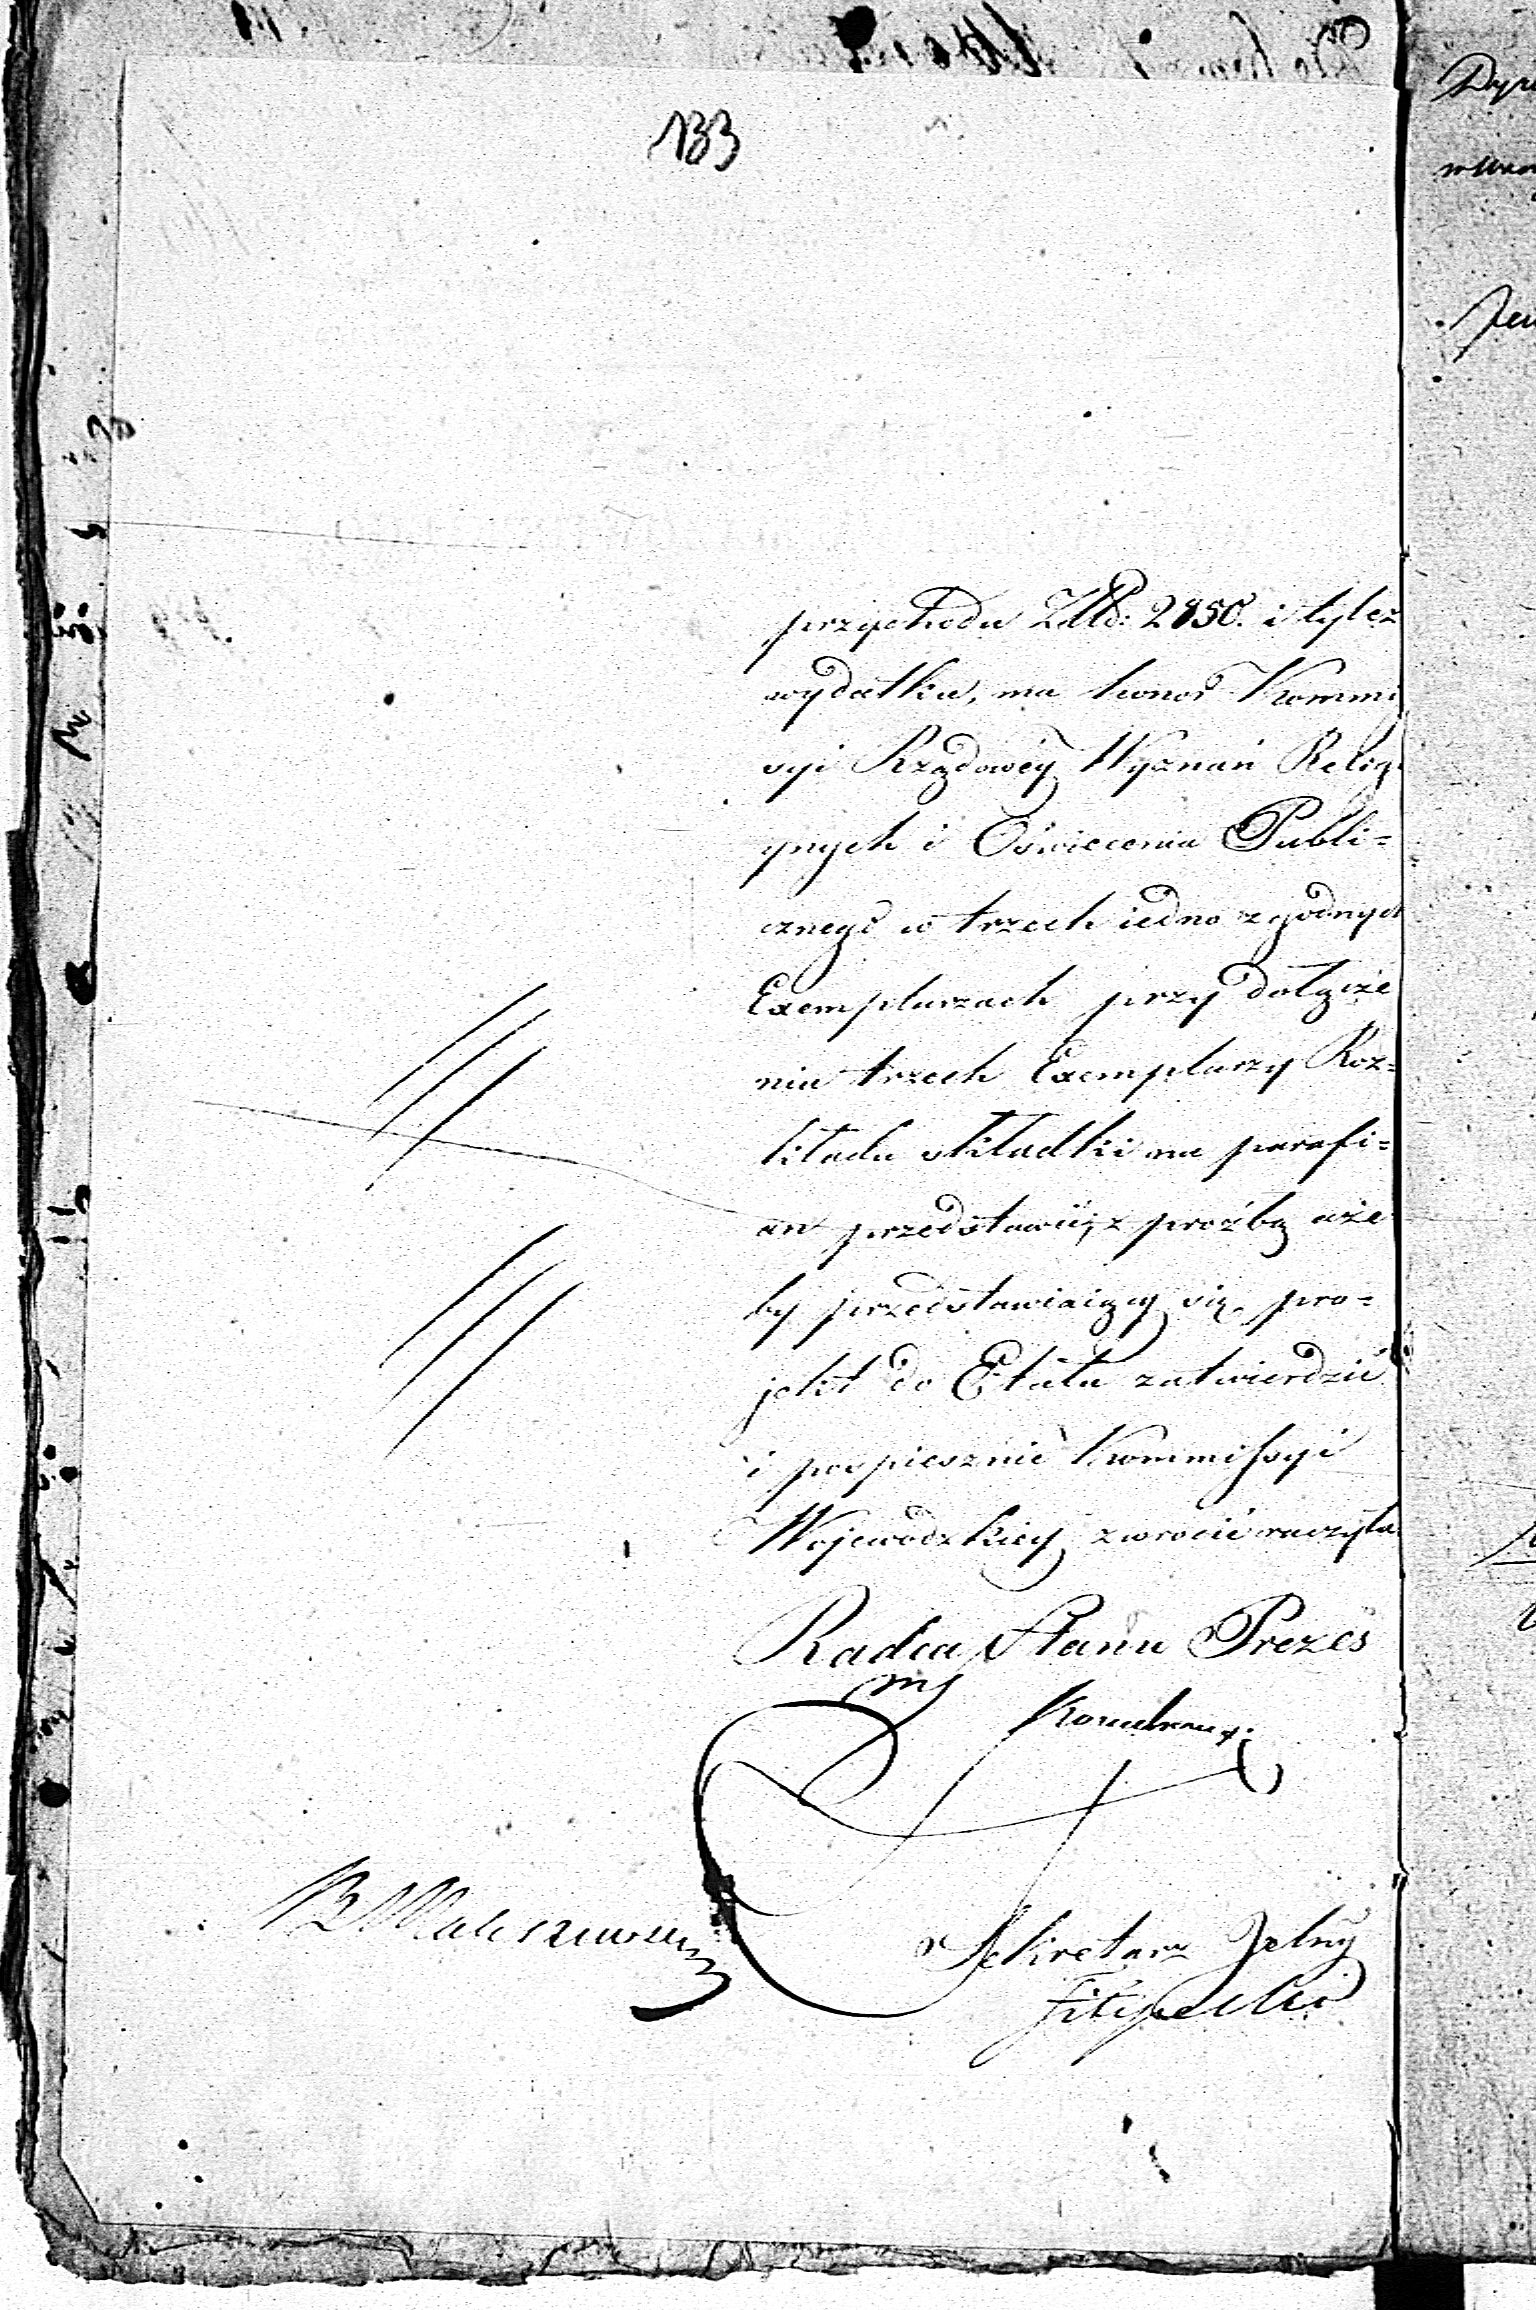 133
przychodu Złł: 2850. i tyleż
wydatku, ma honor Kommi
syi Rządowéy Wyznań Relig
ynych i Oświecenia Publi=
cznego w trzech iedno zgodnych
Exemplarzach przy dołącze
niu trzech Exemplarzy Roz=
kładu składki na parafi=
an przedstawić, z prośbą aże
by przedstawiaiący się pro=
jekt do Etatu zatwierdzić
i pospiesznie Kommissyi
Woiewódzkiey zwrócić raczyła
Radca Stanu Prezes
Sekretarz Jlny
Filipecki